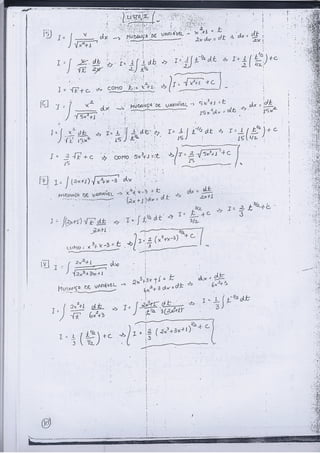 LISTA I
15) I = ∫ x/√(x²+1) dx → MUDANÇA DE VARIÁVEL → x²+1 = t
2x dx = dt → dx = dt/2x
I = ∫ x/√t dt/2x → I = 1/2 ∫ 1/t^(1/2) dt → I = 1/2 ∫ t^(-1/2) dt → I = 1/2 (t^(1/2)/(1/2)) + C
I = √t + C → COMO t = x²+1 → I = √(x²+1) + C
16) I = ∫ x²/√(5x³+1) dx → MUDANÇA DE VARIÁVEL → 5x³+1 = t
15x² dx = dt → dx = dt/15x²
I = ∫ x²/√t dt/15x² → I = 1/15 ∫ 1/t^(1/2) dt → I = 1/15 ∫ t^(-1/2) dt → I = 1/15 (t^(1/2)/(1/2)) + C
I = 2/15 √t + C → COMO 5x³+1 = t → I = 2/15 √(5x³+1) + C
I = ∫ (2x+1) √(x²+x-3) dx
MUDANÇA DE VARIÁVEL → x²+x-3 = t
(2x+1) dx = dt → dx = dt/2x+1
I = ∫ (2x+1) √t dt/2x+1 → I = ∫ t^(1/2) dt → I = t^(3/2)/(3/2) + C → I = 2/3 t^(3/2) + C
COMO: x²+x-3 = t → I = 2/3 (x²+x-3)^(3/2) + C
I = ∫ 2x²+1/√(2x³+3x+1) dx
MUDANÇA DE VARIÁVEL → 2x³+3x+1 = t
6x²+3 dx = dt → dx = dt/6x²+3
I = ∫ 2x²+1/√t dt/6x²+3 → I = ∫ 2x²+1/t^(1/2) dt/3(2x²+1) → I = 1/3 ∫ t^(-1/2) dt
I = 1/3 (t^(1/2)/(1/2)) + C → I = 2/3 (2x³+3x+1)^(1/2) + C